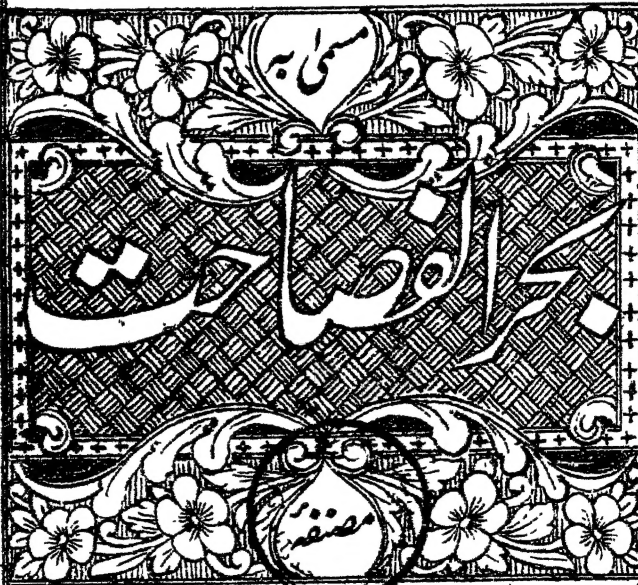 مسمیٰ بہ
بحر الفصاحت
مصنفہ